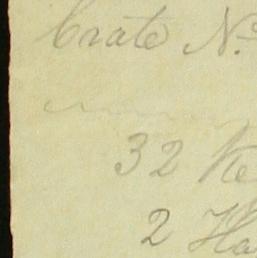 Crate No
32
2 Ha